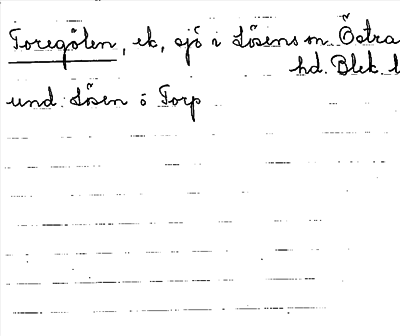 Toregölen, ek, sjö i Lösens sn. Östra
hd. Blek. l
und. Lösen ö Torp